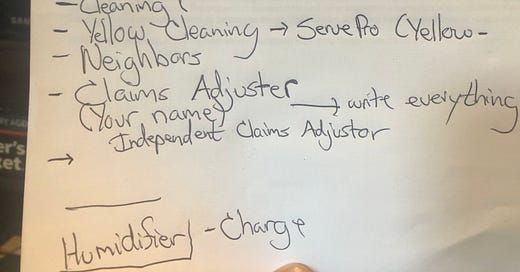 - Cleaning (
- Yellow Cleaning → ServePro (Yellow -
- Neighbors
- Claims Adjuster → write everything
(Your name)
Independent Claims Adjustor
→
Humidifier - Charge
er's
ket